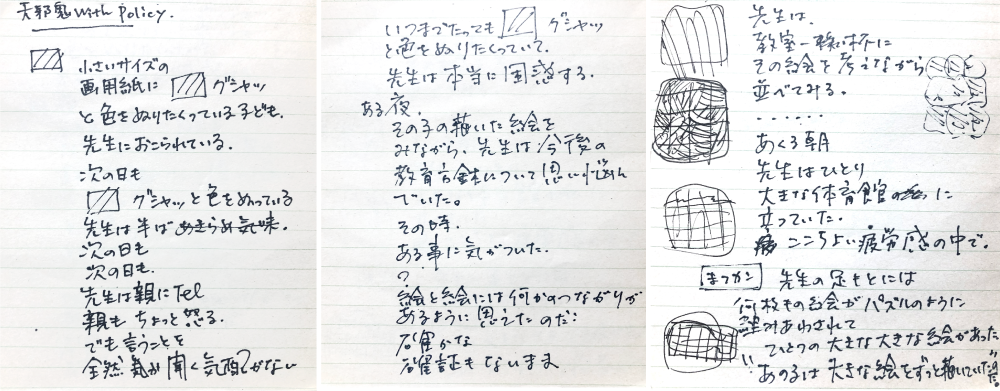 天邪鬼 with policy.
小さいサイズの
画用紙に グシャッ
と色をぬりたくっている子ども。
先生におこられている。
次の日も
グシャッと色をぬっている
先生は半ばあきらめ気味。
次の日も
次の日も。
先生は親にTel
親もちょっと怒る。
でも言うことを
全然 聞く気配がない
いつまでたっても グシャッ
と色をぬりたくっていて。
先生は本当に困惑する。
ある夜。
その子の描いた絵を
みながら、先生は今後の
教育方針について思い悩ん
でいた。
その時。
ある事に気がついた。
?
絵と絵には何かのつながりが
あるように思えたのだ!
確かな
確証もないまま
先生は、
教室一杯に
その絵を考えながら
並べてみる。
・・・・・・
あくる朝
先生はひとり
大きな体育館に
立っていた。
ここちよい疲労感の中で。
先生の足もとには
何枚もの絵がパズルのように
組みあわされて
ひとつの大きな大きな絵があった
あの子は大きな絵をずっと描いていた